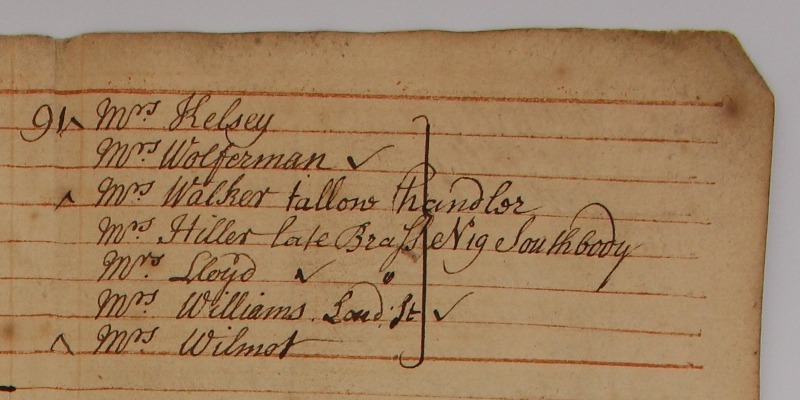 91 ^ Mrs Kelsey
Mrs Wolferman ✓
^ Mrs Walker tallow Chandler
Mrs Hiller late Brass No 19 Southbody
Mrs Lloyd ✓
Mrs Williams Lond: St ✓
^ Mrs Wilmot